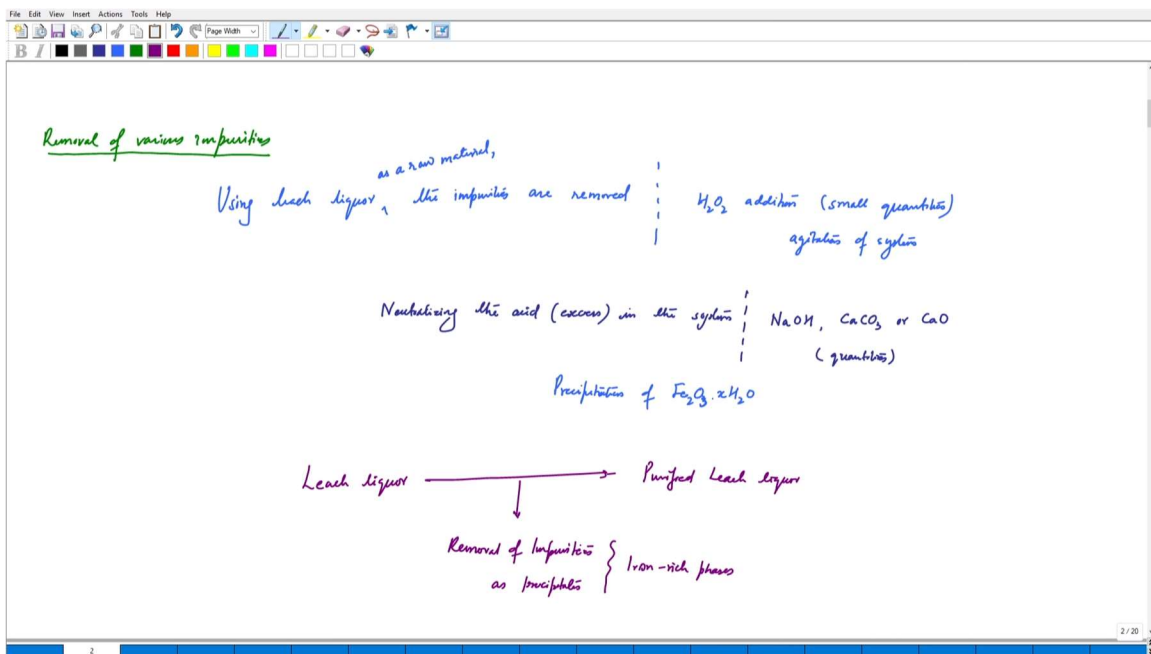 File Edit View Insert Actions Tools Help
Page Width
B I
Removal of various impurities
as a raw material,
Using leach liquor, the impurities are removed
H₂O₂ addition (small quantities)
agitation of system
Neutralizing the acid (excess) in the system
NaOH, CaCO₃ or CaO
(quantities)
Precipitation of Fe₂O₃.xH₂O
Leach liquor
Purified Leach liquor
Removal of Impurities
as precipitates
Iron-rich phases
2 / 20
2